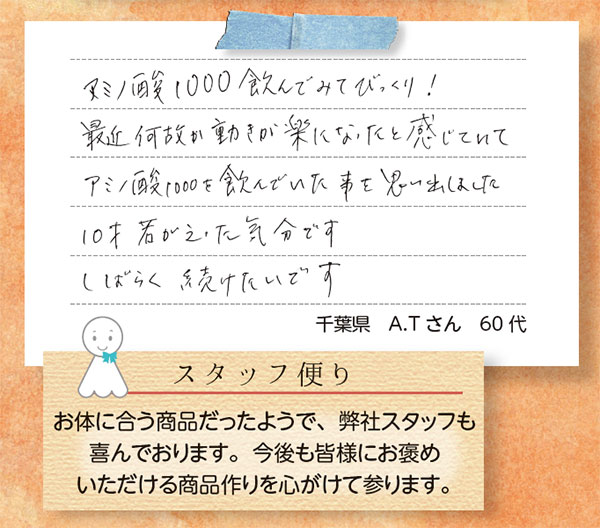 アミノ酸1000飲んでみてびっくり!
最近何故か動きが楽になったと感じていて
アミノ酸1000を飲んでいた事を思い出しました
10才若がえった気分です
しばらく続けたいです
千葉県 A.Tさん 60代
スタッフ便り
お体に合う商品だったようで、弊社スタッフも
喜んでおります。今後も皆様にお褒め
いただける商品作りを心がけて参ります。